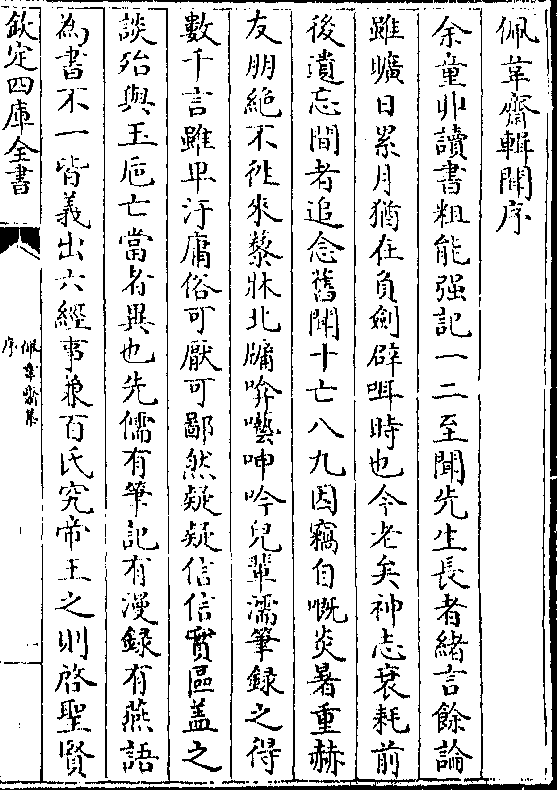 佩韋齋輯聞序
余童丱讀書粗能强記一二至聞先生長者緒言餘論
雖曠日累月猶在負劍辟咡時也今老矣神志衰耗前
後遺忘間者追念舊聞十亡八九因竊自嘅炎暑重赫
友朋絶不徃來藜牀北牖囈呻吟兒輩濡筆録之得
數千言雖卑汙庸俗可厭可鄙然疑疑信信實區盖之
談殆與玉巵亡當者異也先儒有筆記有漫録有燕語
為書不一皆義出六經事兼百氏究帝王之則啓聖賢
欽定四庫全書
佩韋齋集
序